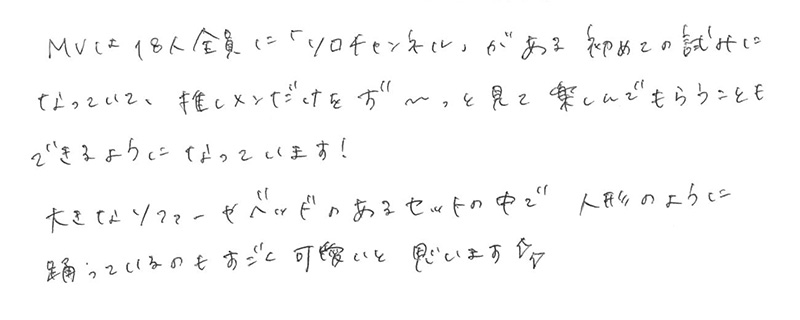 MVは18人全員に「ソロチャンネル」がある初めての試みに
なっていて、推しメンだけをず〜っと見て楽しんでもらうことも
できるようになっています！
大きなソファーやベッドのあるセットの中で人形のように
踊っているのもすごく可愛いと思います☆☆